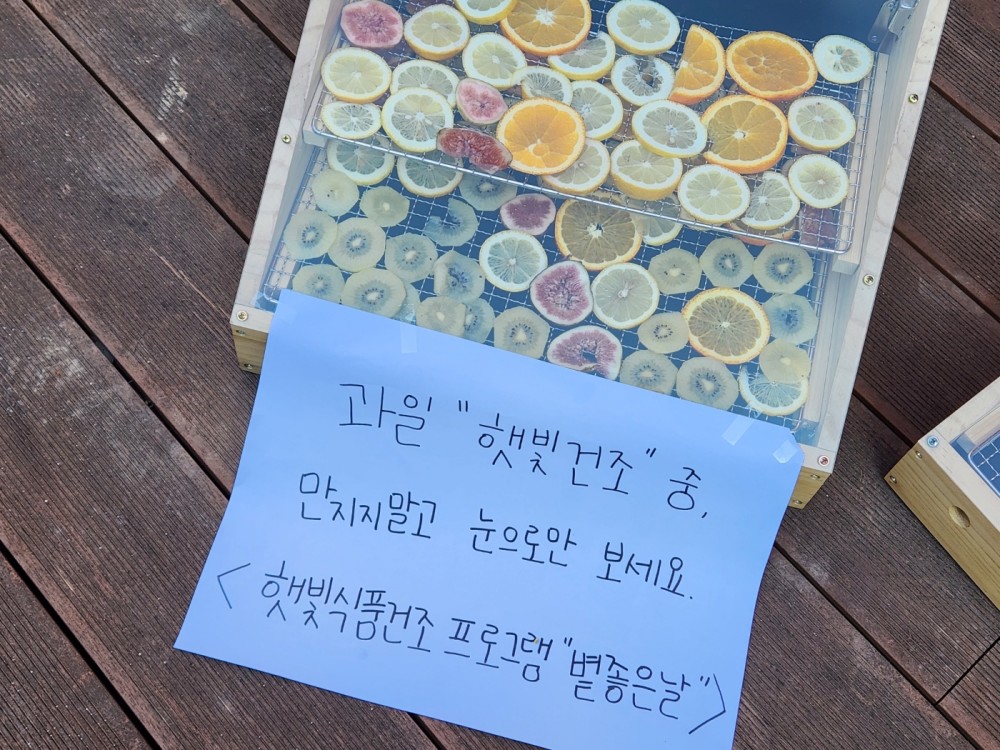 과일 "햇빛건조" 중,
만지지말고 눈으로만 보세요.
<햇빛식품건조 프로그램 "볕좋은날">